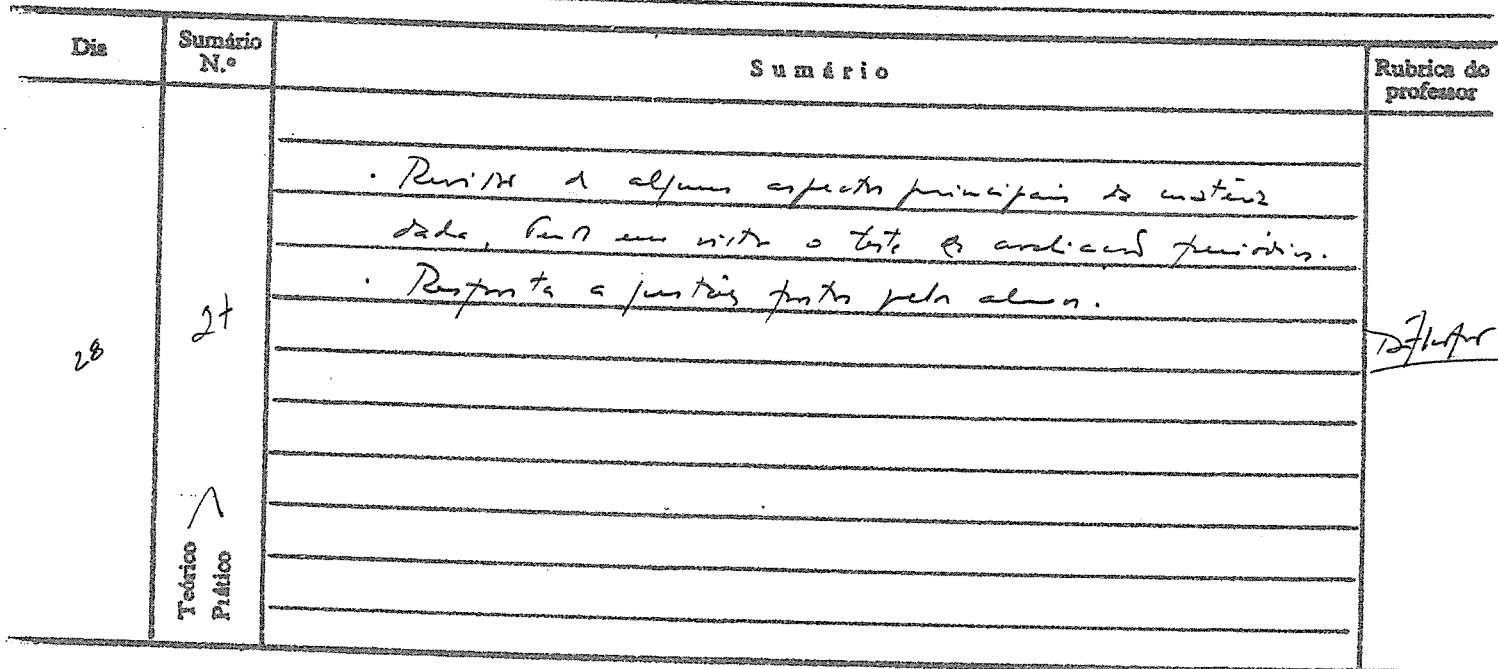 Dia
Sumário N.º
Sumário
Rubrica do professor
28
. Revisão de alguns aspectos principais da matéria
dada, tendo em vista o teste de avaliação periódica.
. Resposta a questões postas pelos alunos.
Teórico
Prático